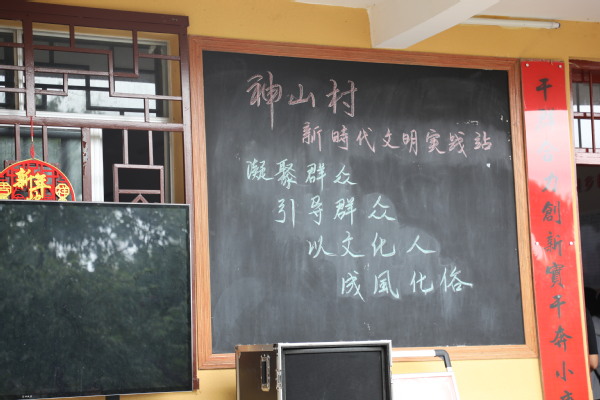 神山村
新時代文明实战站
凝聚群众
引导群众
以文化人
成風化俗
新年
干
創新實干奔小康